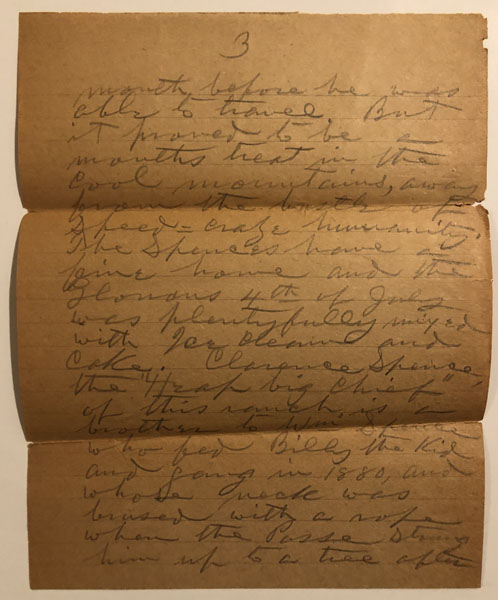 3
month before he was
able to travel. But
it proved to be a
months treat in the
cool mountains, away
from the bustle of
speed-craze humanity.
The Spences have a
fine home and the
Glorious 4th of July
was plentyfully mixed
with Ice cream and
cake. Clarence Spence,
the "Heap big chief"
of this ranch, is a
brother to Wm Spence
who fed Billy the Kid
and gang in 1880, and
whose neck was
brused with a rope
when the Posse strung
him up to a tree after